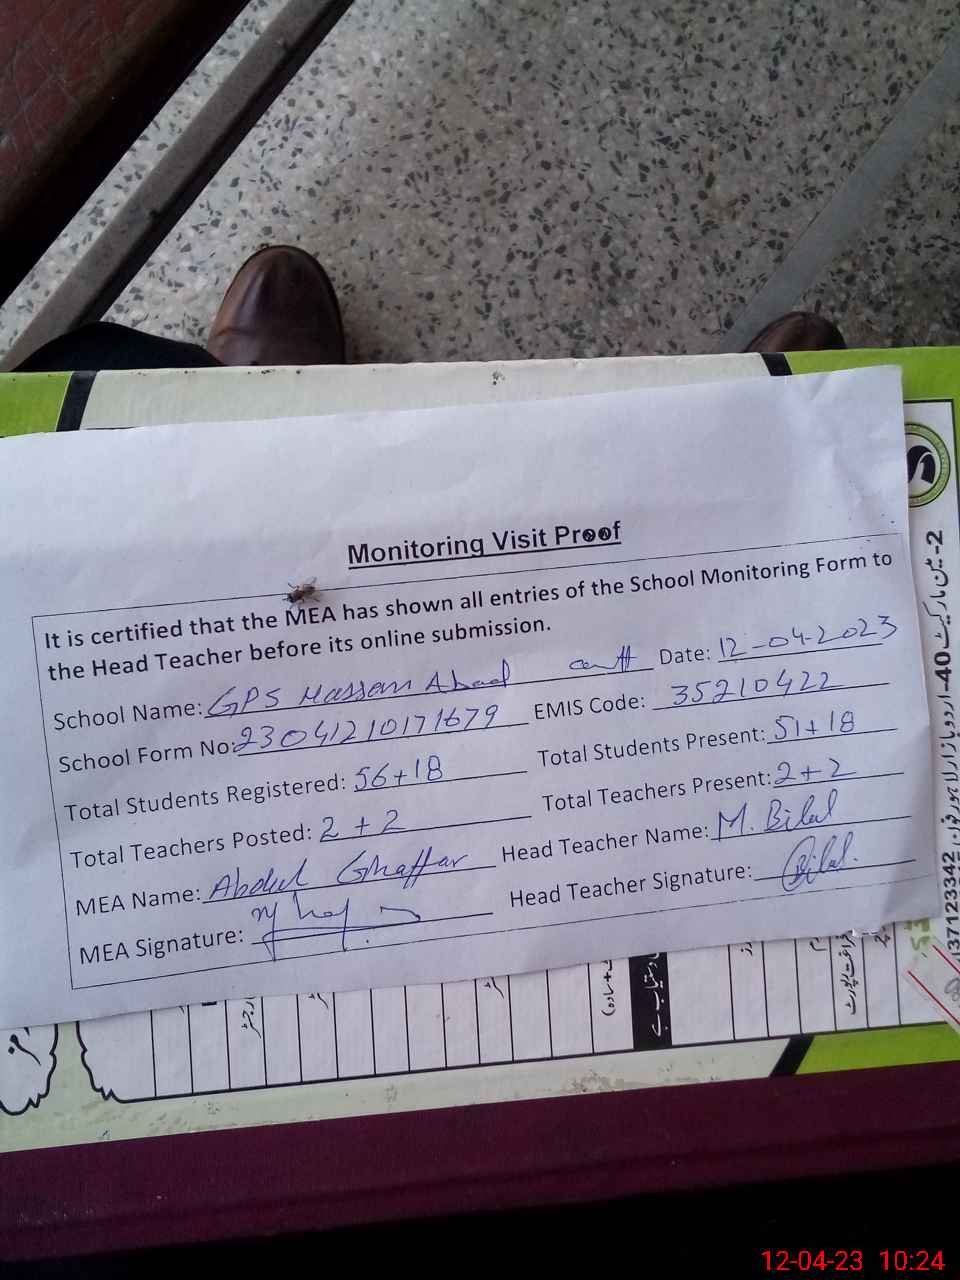 Monitoring Visit Proof
It is certified that the MEA has shown all entries of the School Monitoring Form to
the Head Teacher before its online submission.
School Name: GPS Hassan Abad cantt Date: 12-04-2023
School Form No: 23041210171679 EMIS Code: 35210422
Total Students Registered: 56+18 Total Students Present: 51+18
Total Teachers Posted: 2+2 Total Teachers Present: 2+2
MEA Name: Abdul Ghaffar Head Teacher Name: M. Bilal
MEA Signature: Head Teacher Signature: Bilal.
2-مین مارکیٹ 40-اردو بازار لاہور فون
37123342
سادہ)
دستیاب ہے
12-04-23 10:24